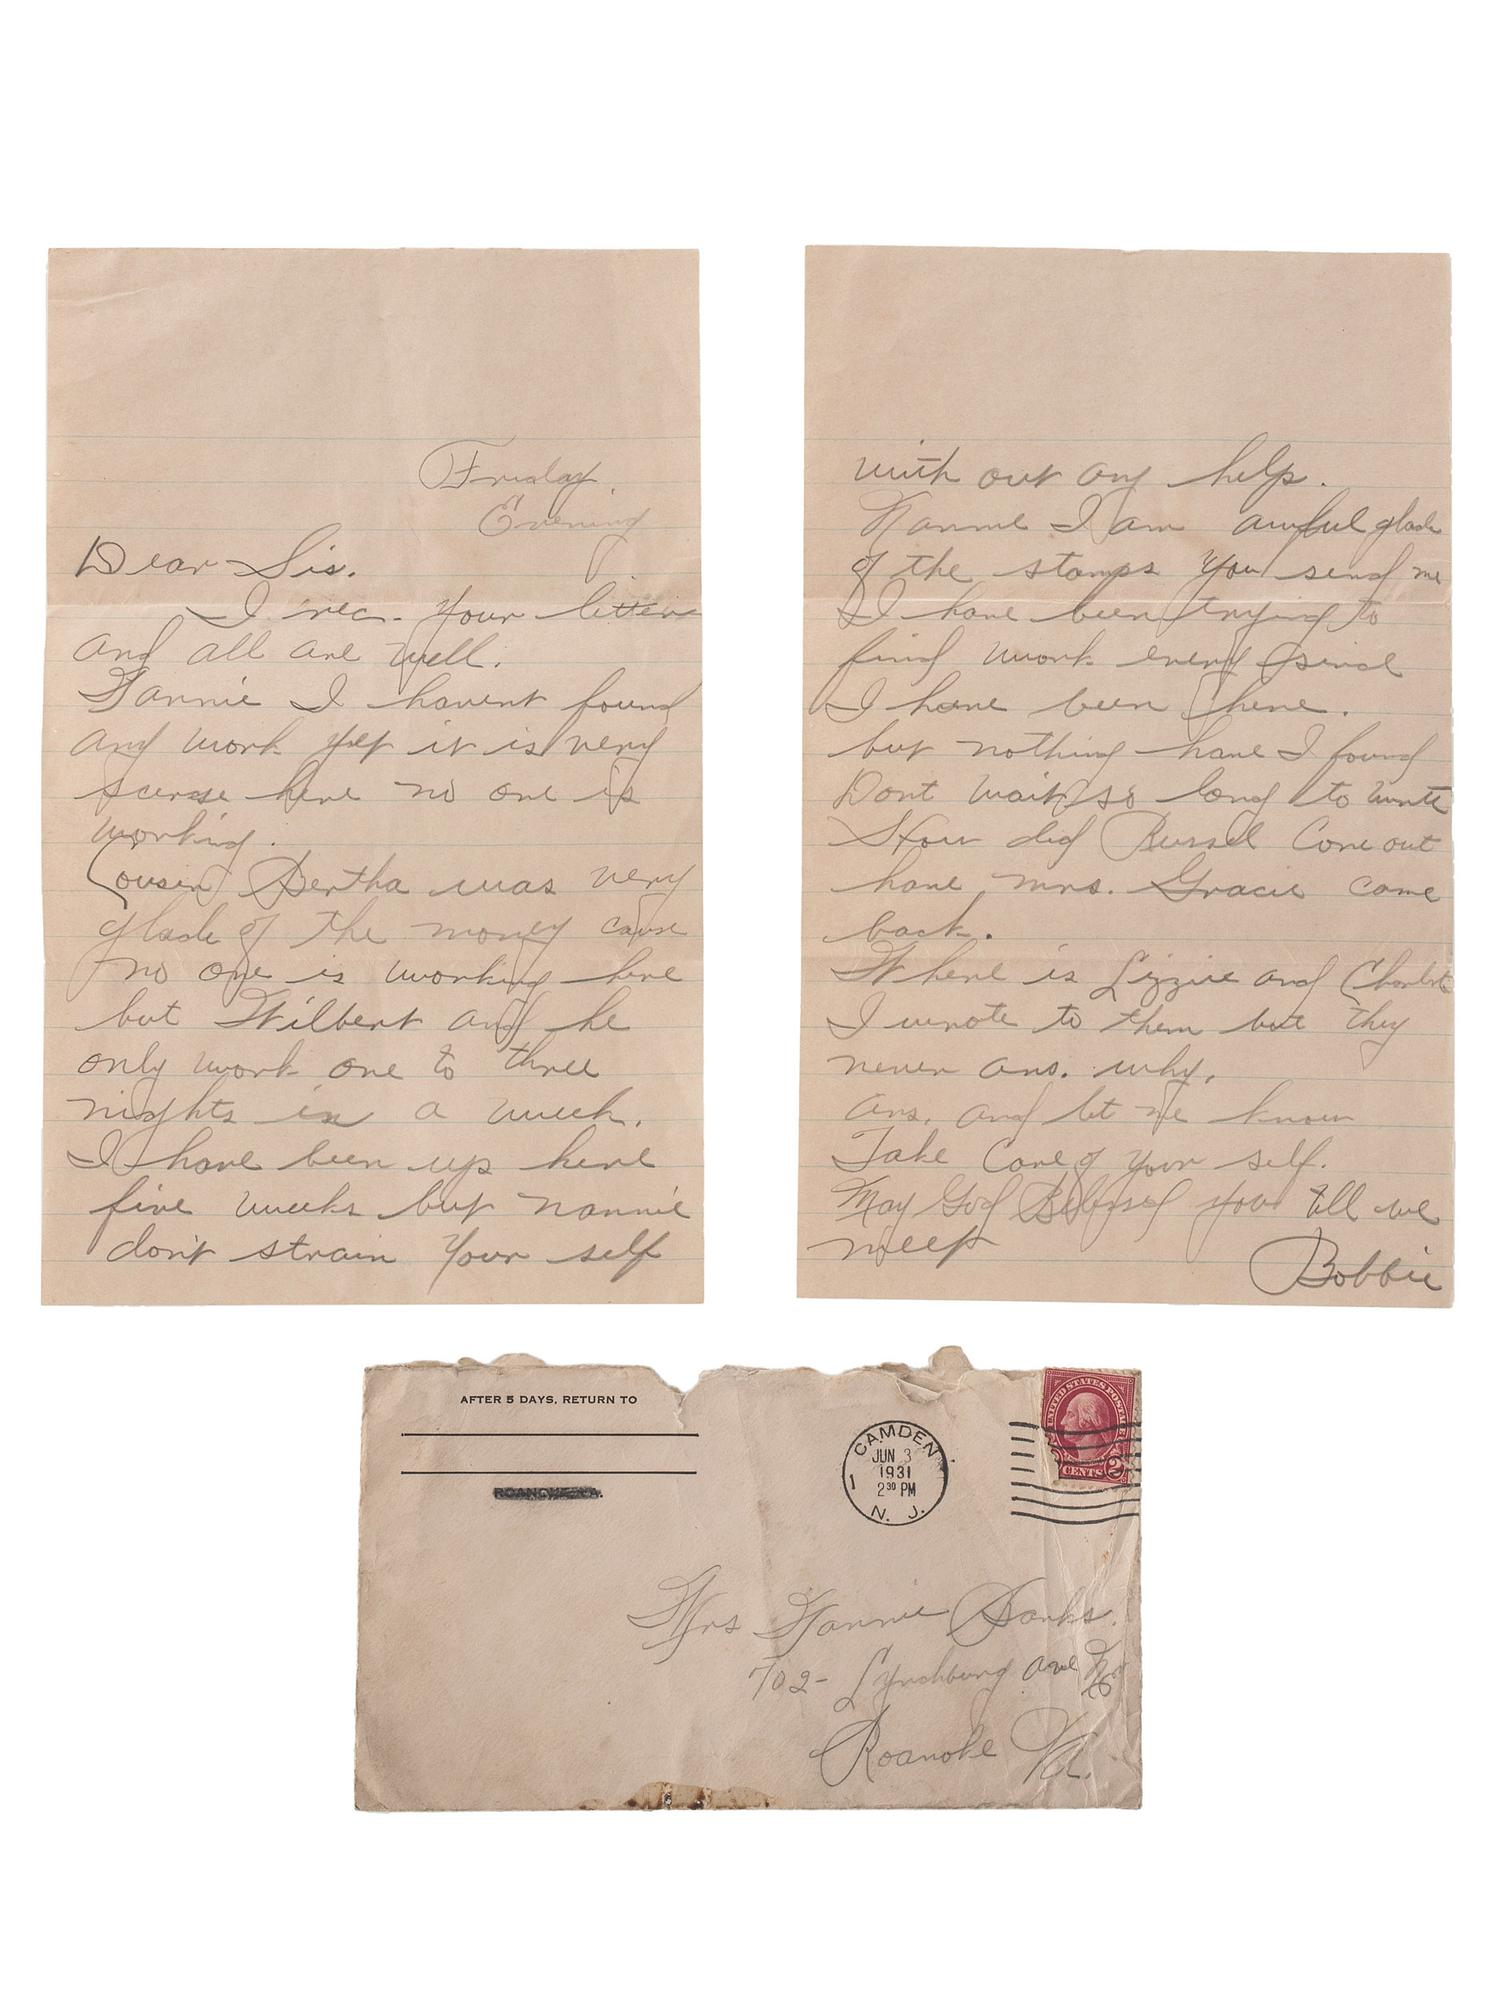 Friday
Evening
Dear Sis.
I rec. your letter
and all are well.
Nannie I havent found
any work yet it is very
scerse here no one is
working.
Cousin Bertha was very
glade of the money cause
no one is working here
but Wilbert and he
only work one to three
nights in a week.
I have been up here
five weeks but nannie
don't strain your self
with out any help.
Nannie I am awful glade
of the stamps you send me
I have been trying to
find work every since
I have been here.
but nothing have I found
Dont wait so long to write
How did Russel Come out
have mrs. Gracie come
back.
Where is Lizzie and
I wrote to them but they
never ans. why.
ans. and let me know
Take Care of your self.
May God you till we
meet
Bobbie
AFTER 5 DAYS, RETURN TO
ROANOKE, VA.
CAMDEN
JUN 3
1931
2 30 PM
N. J.
1
UNITED STATES POSTAGE
2
CENTS
Mrs Nannie Banks.
702- Lynchburg ave
Roanoke Va.